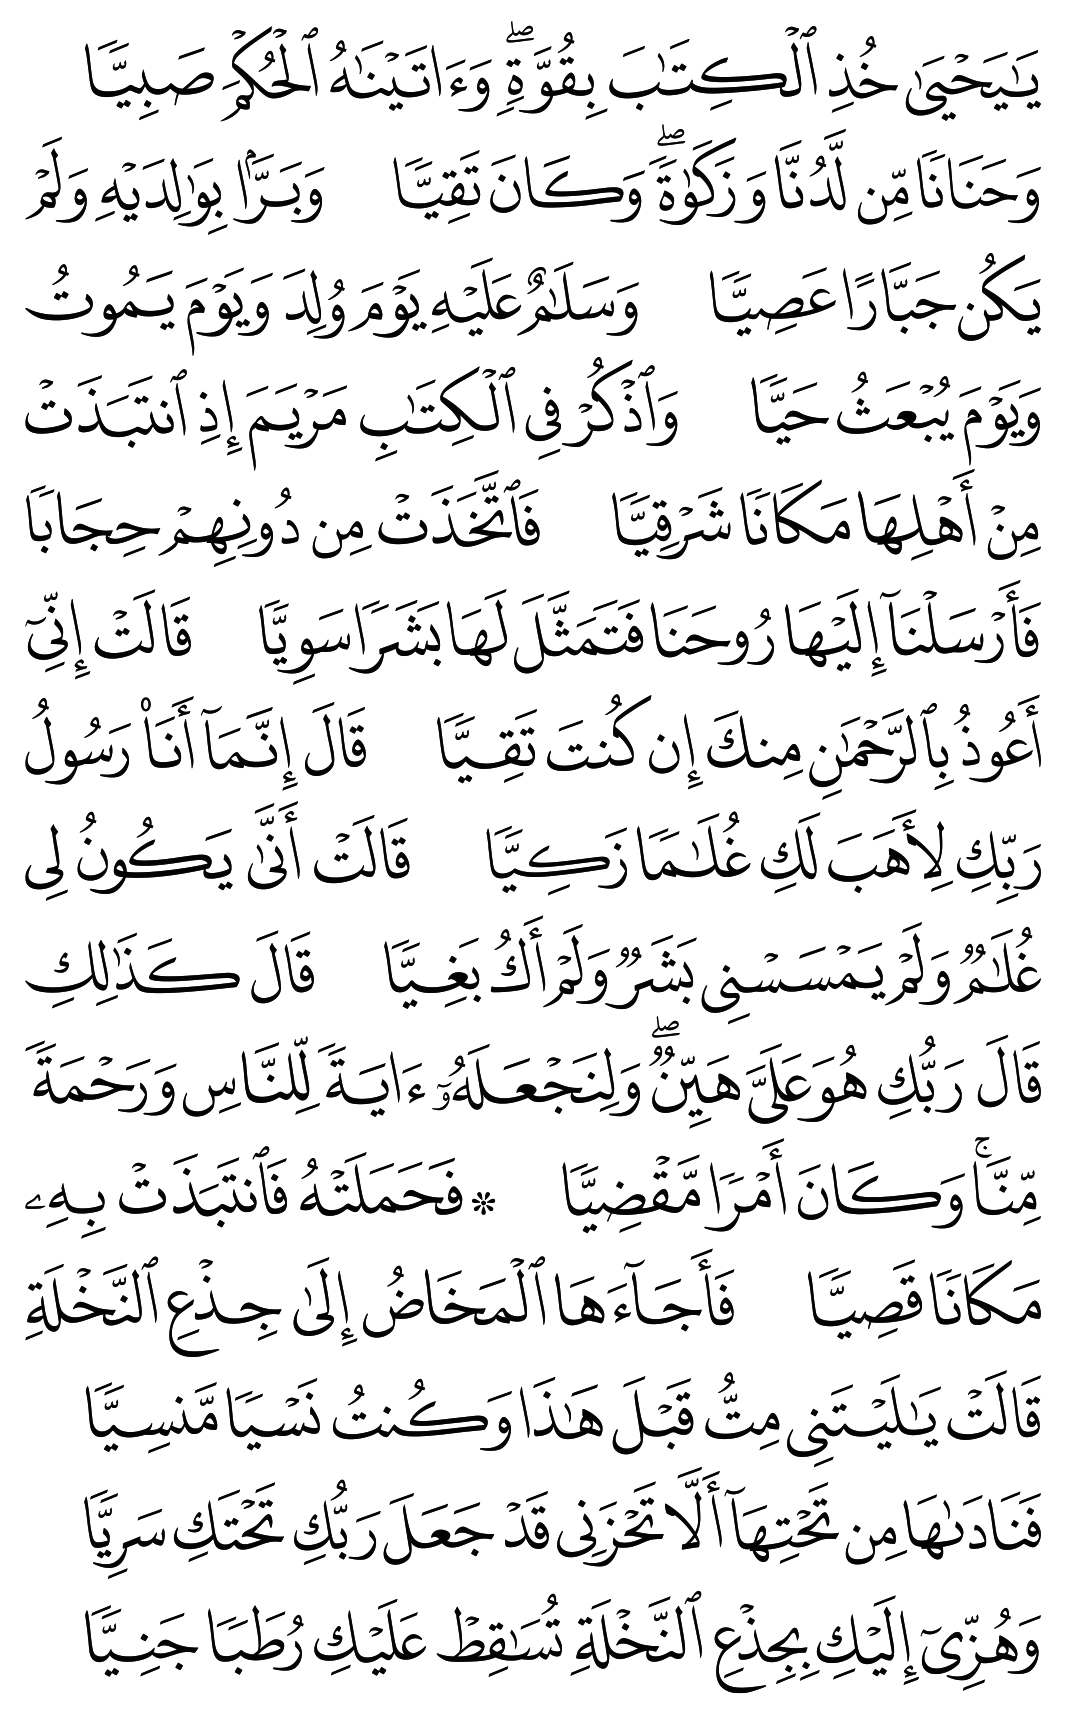 يَـٰيَحْيَىٰ خُذِ ٱلْكِتَـٰبَ بِقُوَّةٍۖ وَءَاتَيْنَـٰهُ ٱلْحُكْمَ صَبِيًّا
وَحَنَانًا مِّن لَّدُنَّا وَزَكَوٰةًۖ وَكَانَ تَقِيًّا وَبَرًّۢا بِوَٰلِدَيْهِ وَلَمْ
يَكُن جَبَّارًا عَصِيًّا وَسَلَـٰمٌ عَلَيْهِ يَوْمَ وُلِدَ وَيَوْمَ يَمُوتُ
وَيَوْمَ يُبْعَثُ حَيًّا وَٱذْكُرْ فِى ٱلْكِتَـٰبِ مَرْيَمَ إِذِ ٱنتَبَذَتْ
مِنْ أَهْلِهَا مَكَانًا شَرْقِيًّا فَٱتَّخَذَتْ مِن دُونِهِمْ حِجَابًا
فَأَرْسَلْنَآ إِلَيْهَا رُوحَنَا فَتَمَثَّلَ لَهَا بَشَرًا سَوِيًّا قَالَتْ إِنِّىٓ
أَعُوذُ بِٱلرَّحْمَـٰنِ مِنكَ إِن كُنتَ تَقِيًّا قَالَ إِنَّمَآ أَنَا۠ رَسُولُ
رَبِّكِ لِأَهَبَ لَكِ غُلَـٰمًا زَكِيًّا قَالَتْ أَنَّىٰ يَكُونُ لِى
غُلَـٰمٌ وَلَمْ يَمْسَسْنِى بَشَرٌ وَلَمْ أَكُ بَغِيًّا قَالَ كَذَٰلِكِ
قَالَ رَبُّكِ هُوَ عَلَىَّ هَيِّنٌۖ وَلِنَجْعَلَهُۥٓ ءَايَةً لِّلنَّاسِ وَرَحْمَةً
مِّنَّاۚ وَكَانَ أَمْرًا مَّقْضِيًّا * فَحَمَلَتْهُ فَٱنتَبَذَتْ بِهِۦ
مَكَانًا قَصِيًّا فَأَجَآءَهَا ٱلْمَخَاضُ إِلَىٰ جِذْعِ ٱلنَّخْلَةِ
قَالَتْ يَـٰلَيْتَنِى مِتُّ قَبْلَ هَـٰذَا وَكُنتُ نَسْيًا مَّنسِيًّا
فَنَادَىٰهَا مِن تَحْتِهَآ أَلَّا تَحْزَنِى قَدْ جَعَلَ رَبُّكِ تَحْتَكِ سَرِيًّا
وَهُزِّىٓ إِلَيْكِ بِجِذْعِ ٱلنَّخْلَةِ تُسَـٰقِطْ عَلَيْكِ رُطَبًا جَنِيًّا